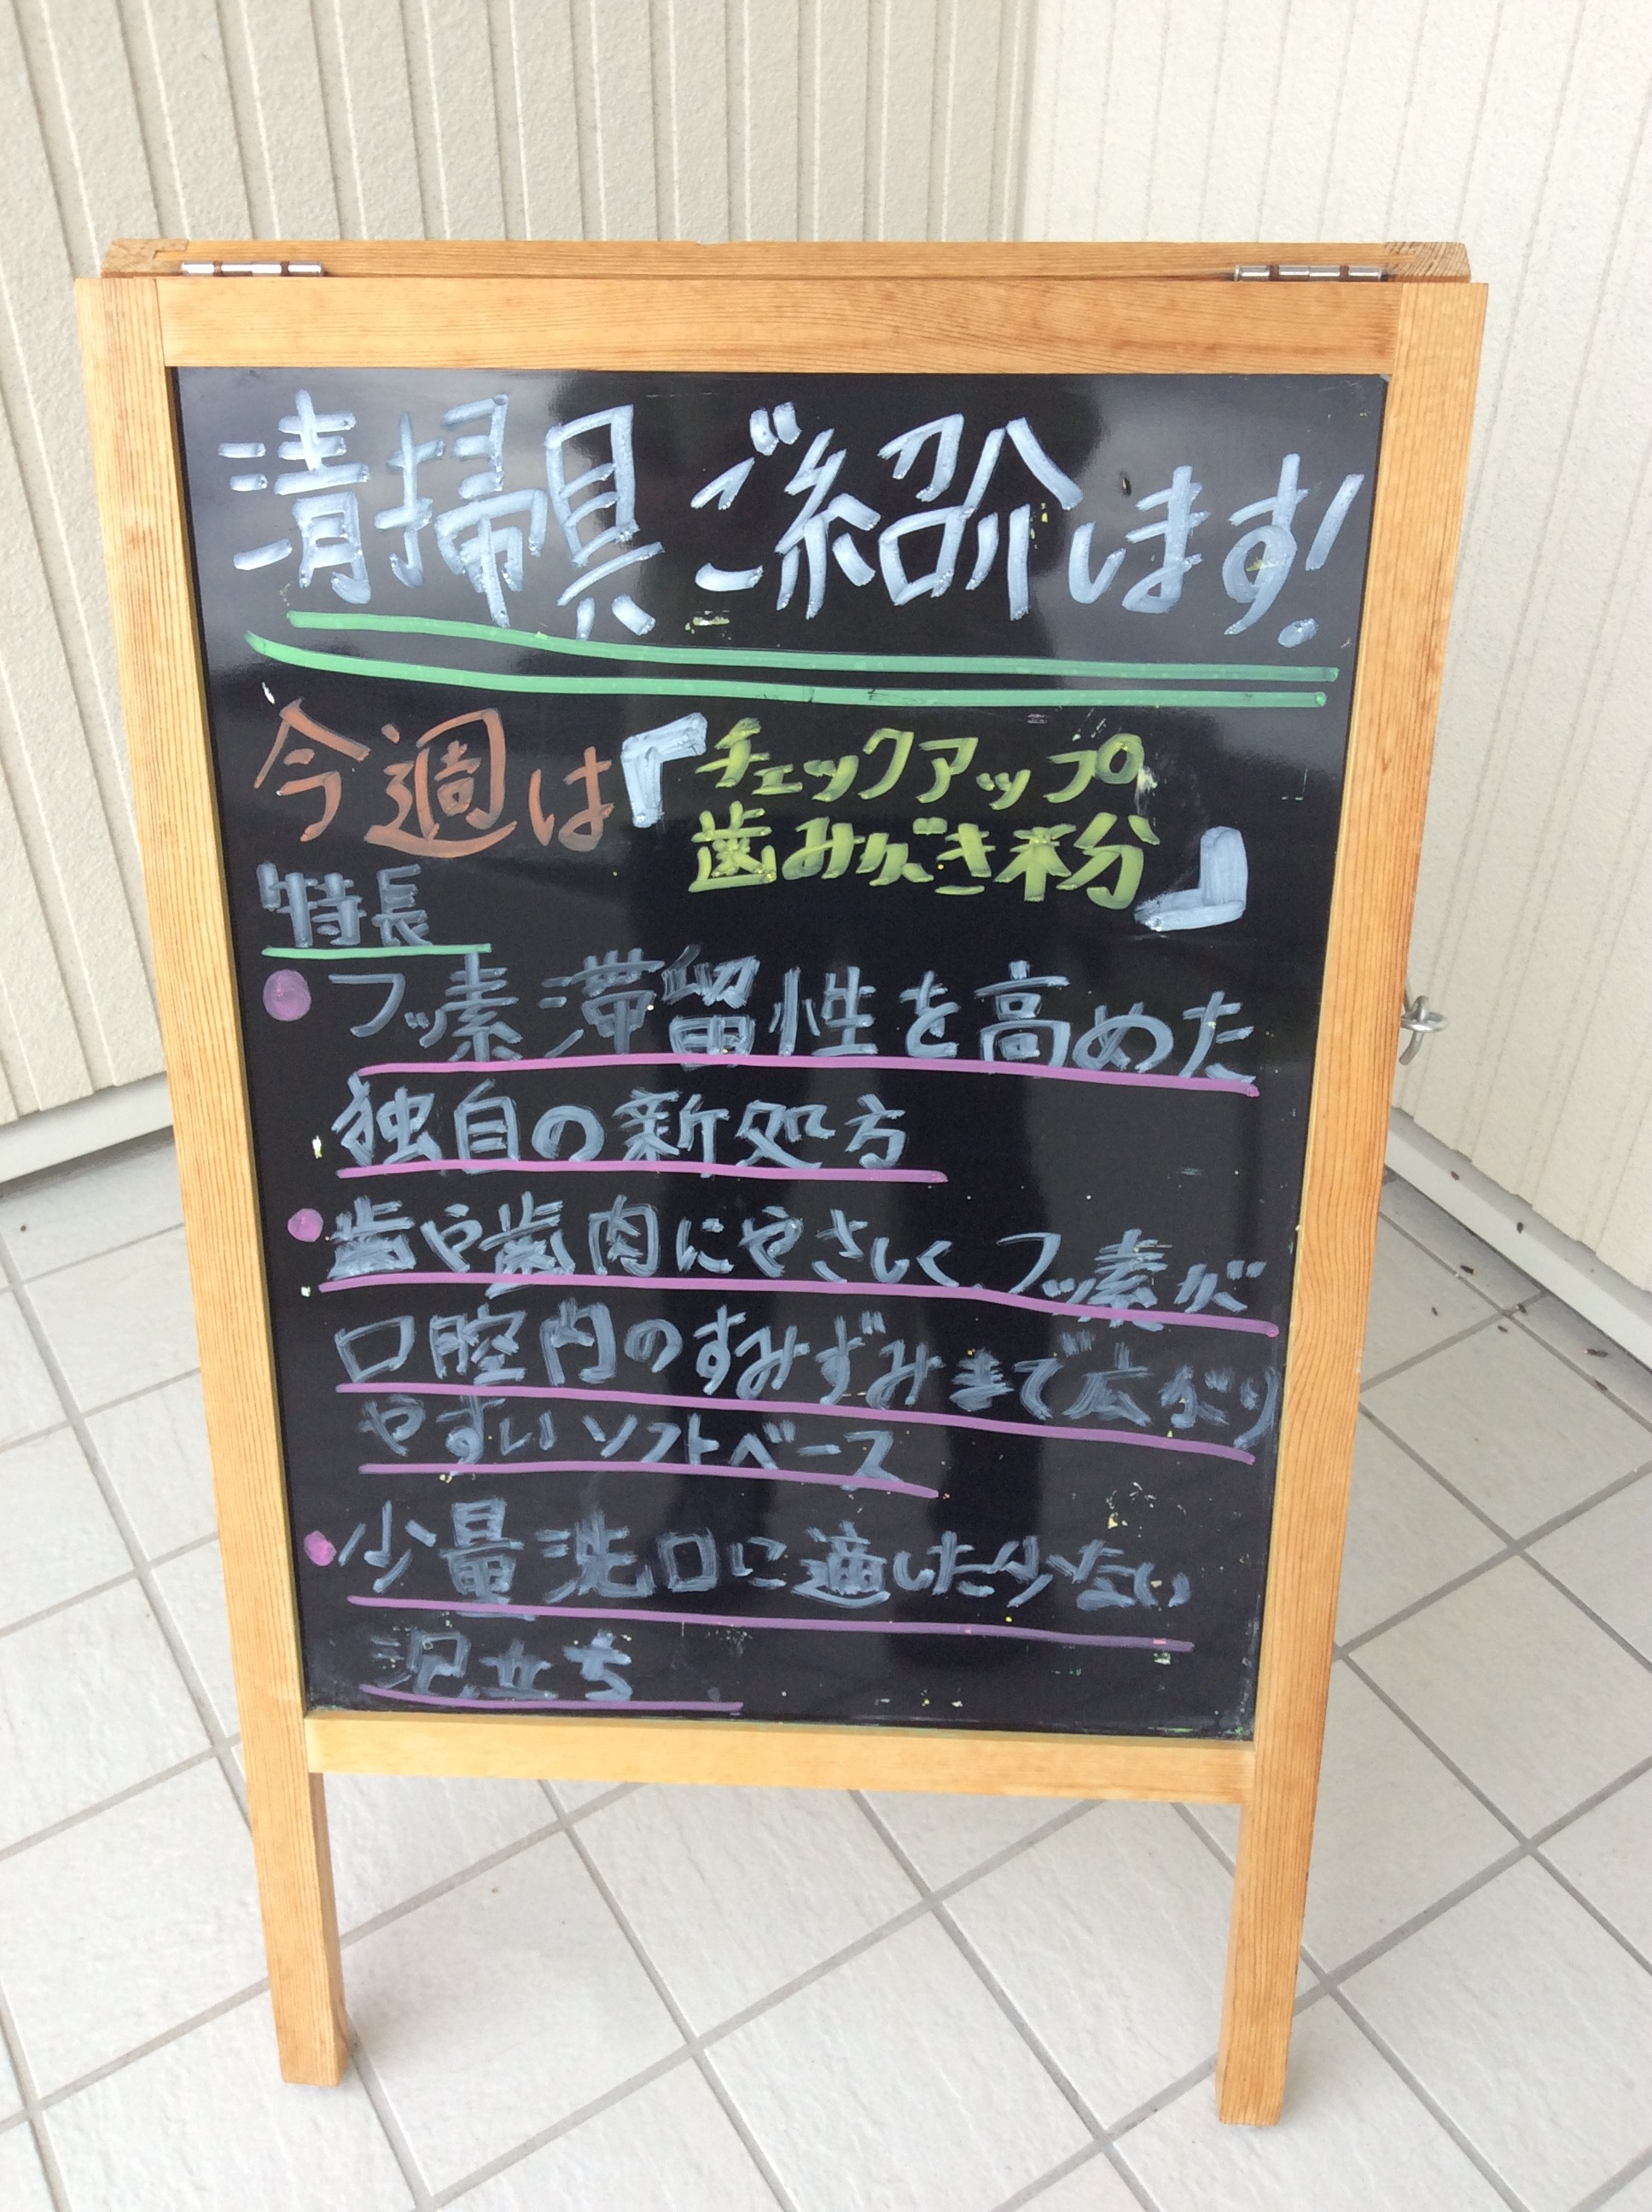 清掃具ご紹介します!
今週は『チェックアップ
歯みがき粉』
特長
フッ素滞留性を高めた
独自の新処方
歯や歯肉にやさしく、フッ素が
口腔内のすみずみまで広がり
やすいソフトペース
少量洗口に適した少ない
泡立ち